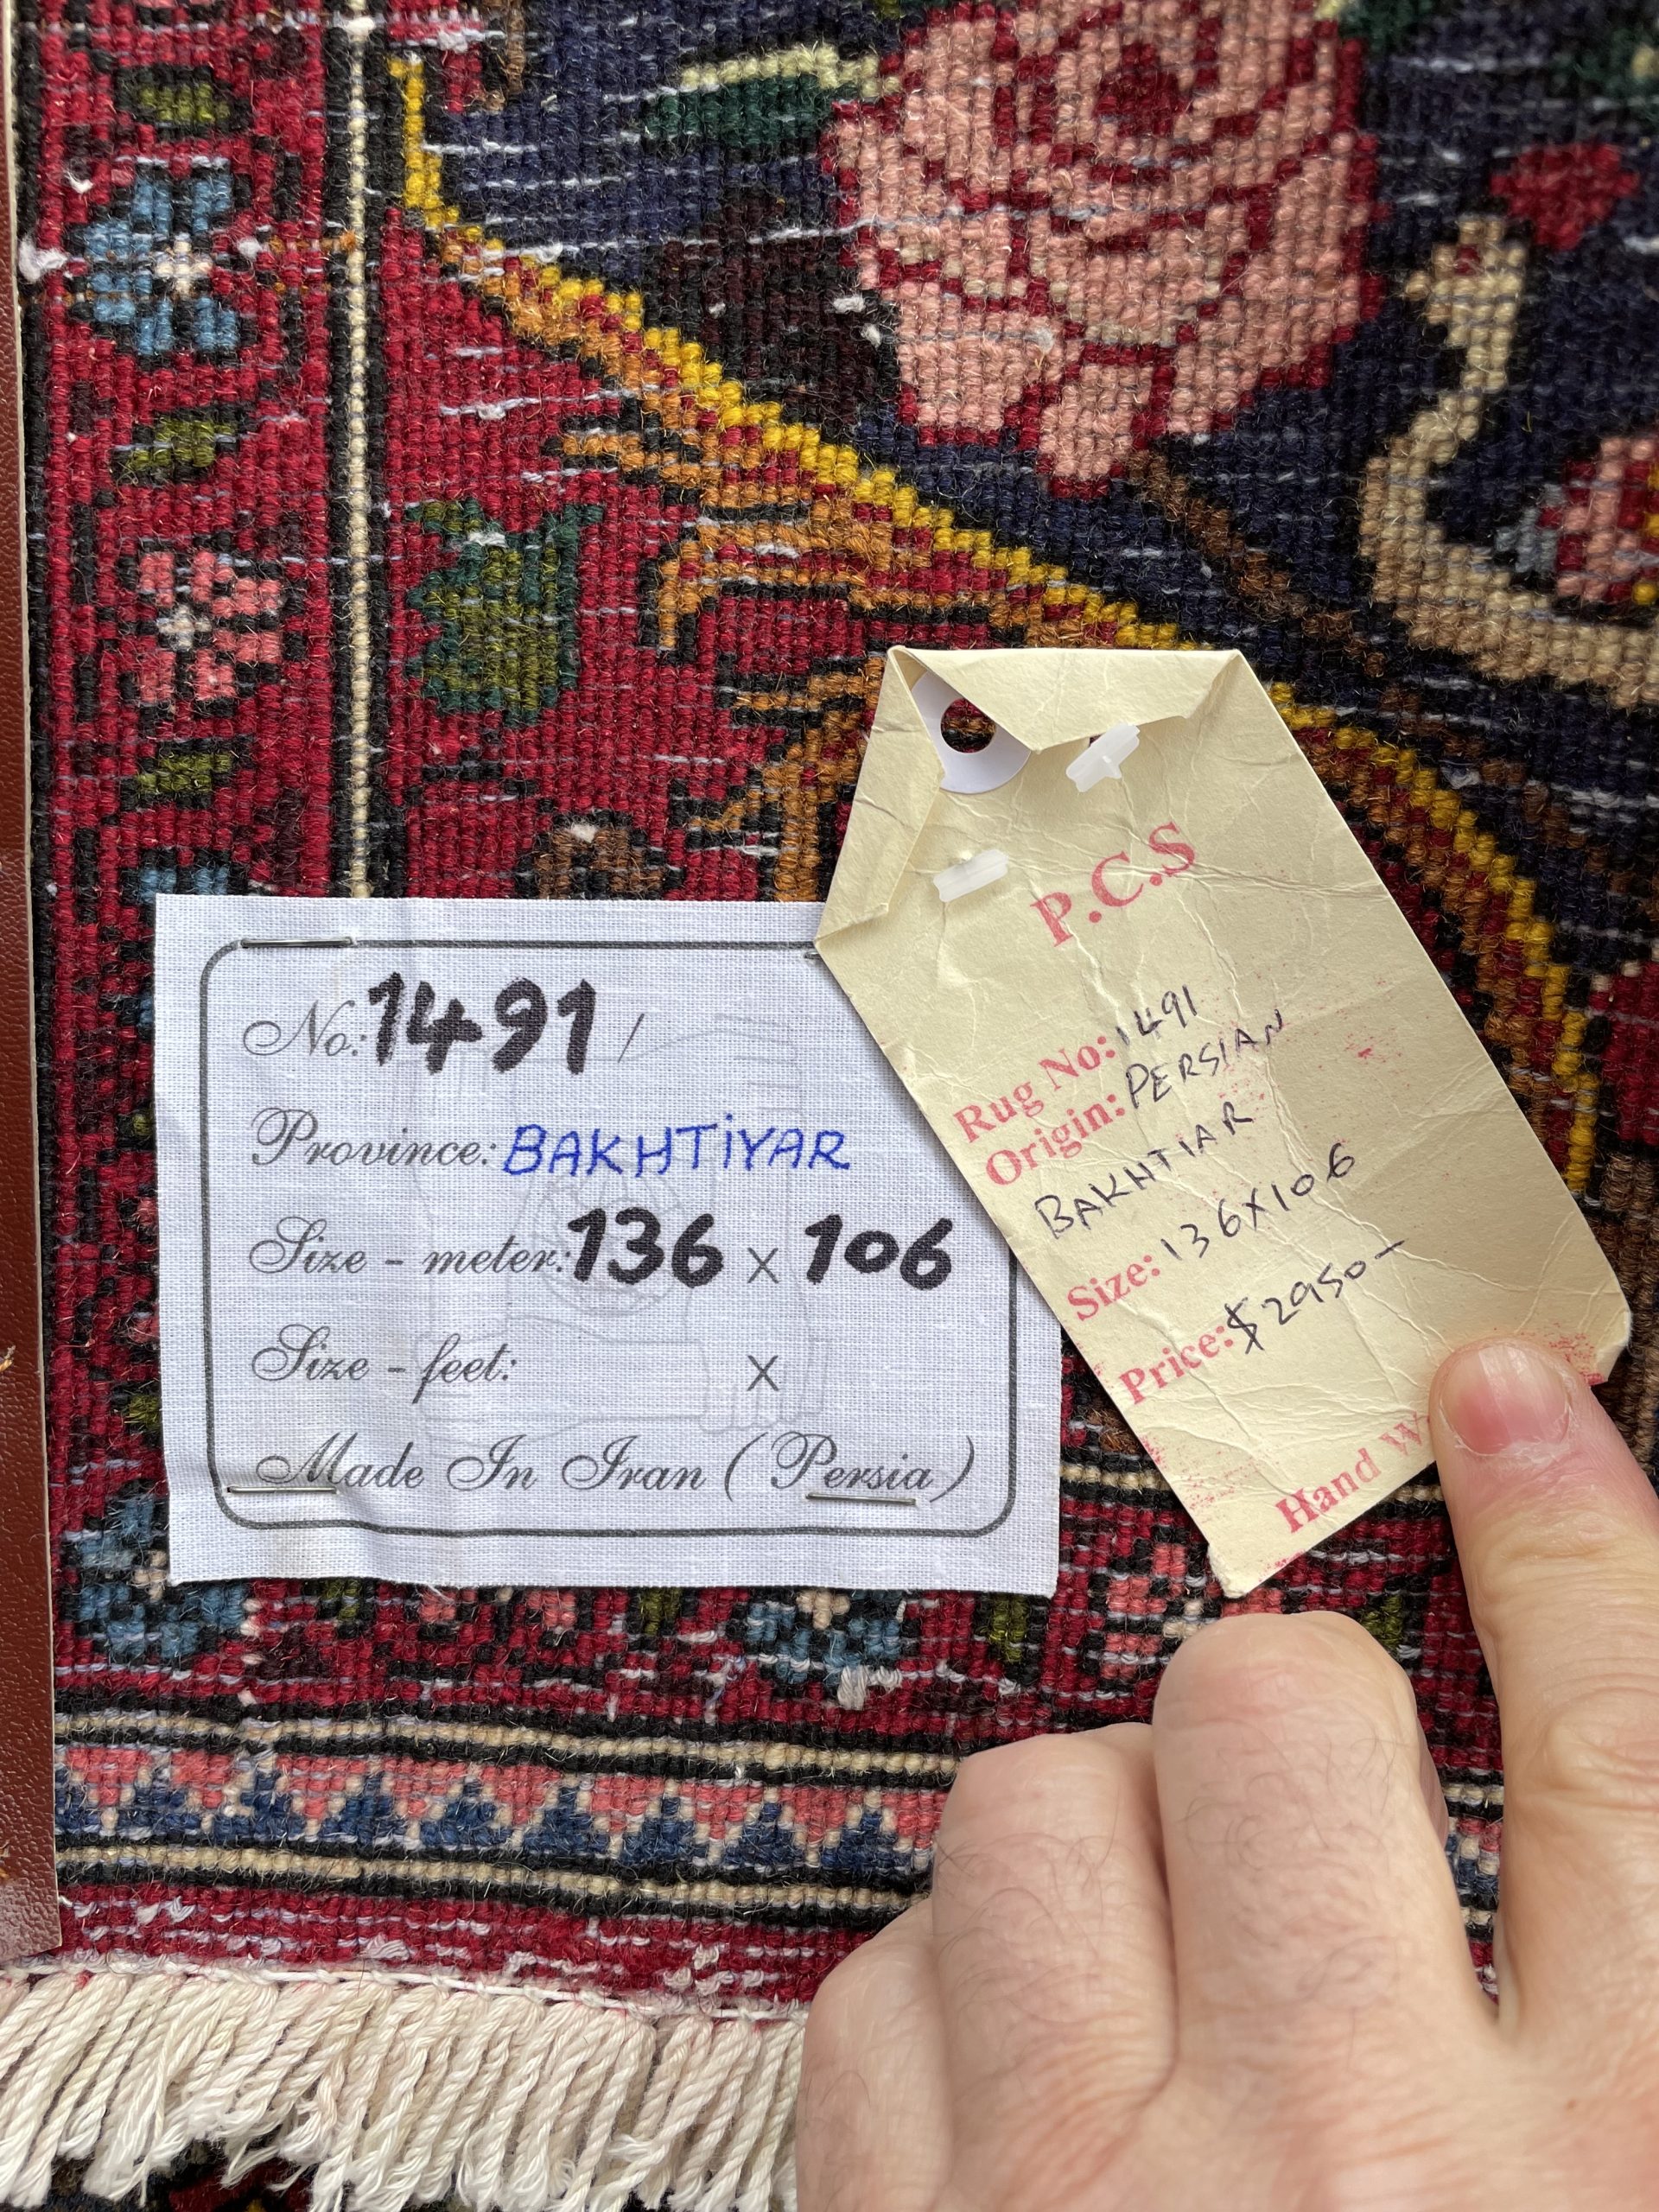 No: 1491 /
Province: BAKHTİYAR
Size - meter: 136 x 106
Size - feet: x
Made In Iran (Persia)
P.C.S
Rug No: 1491
Origin: PERSIAN
BAKHTIAR
Size: 136x106
Price: $2950-
Hand